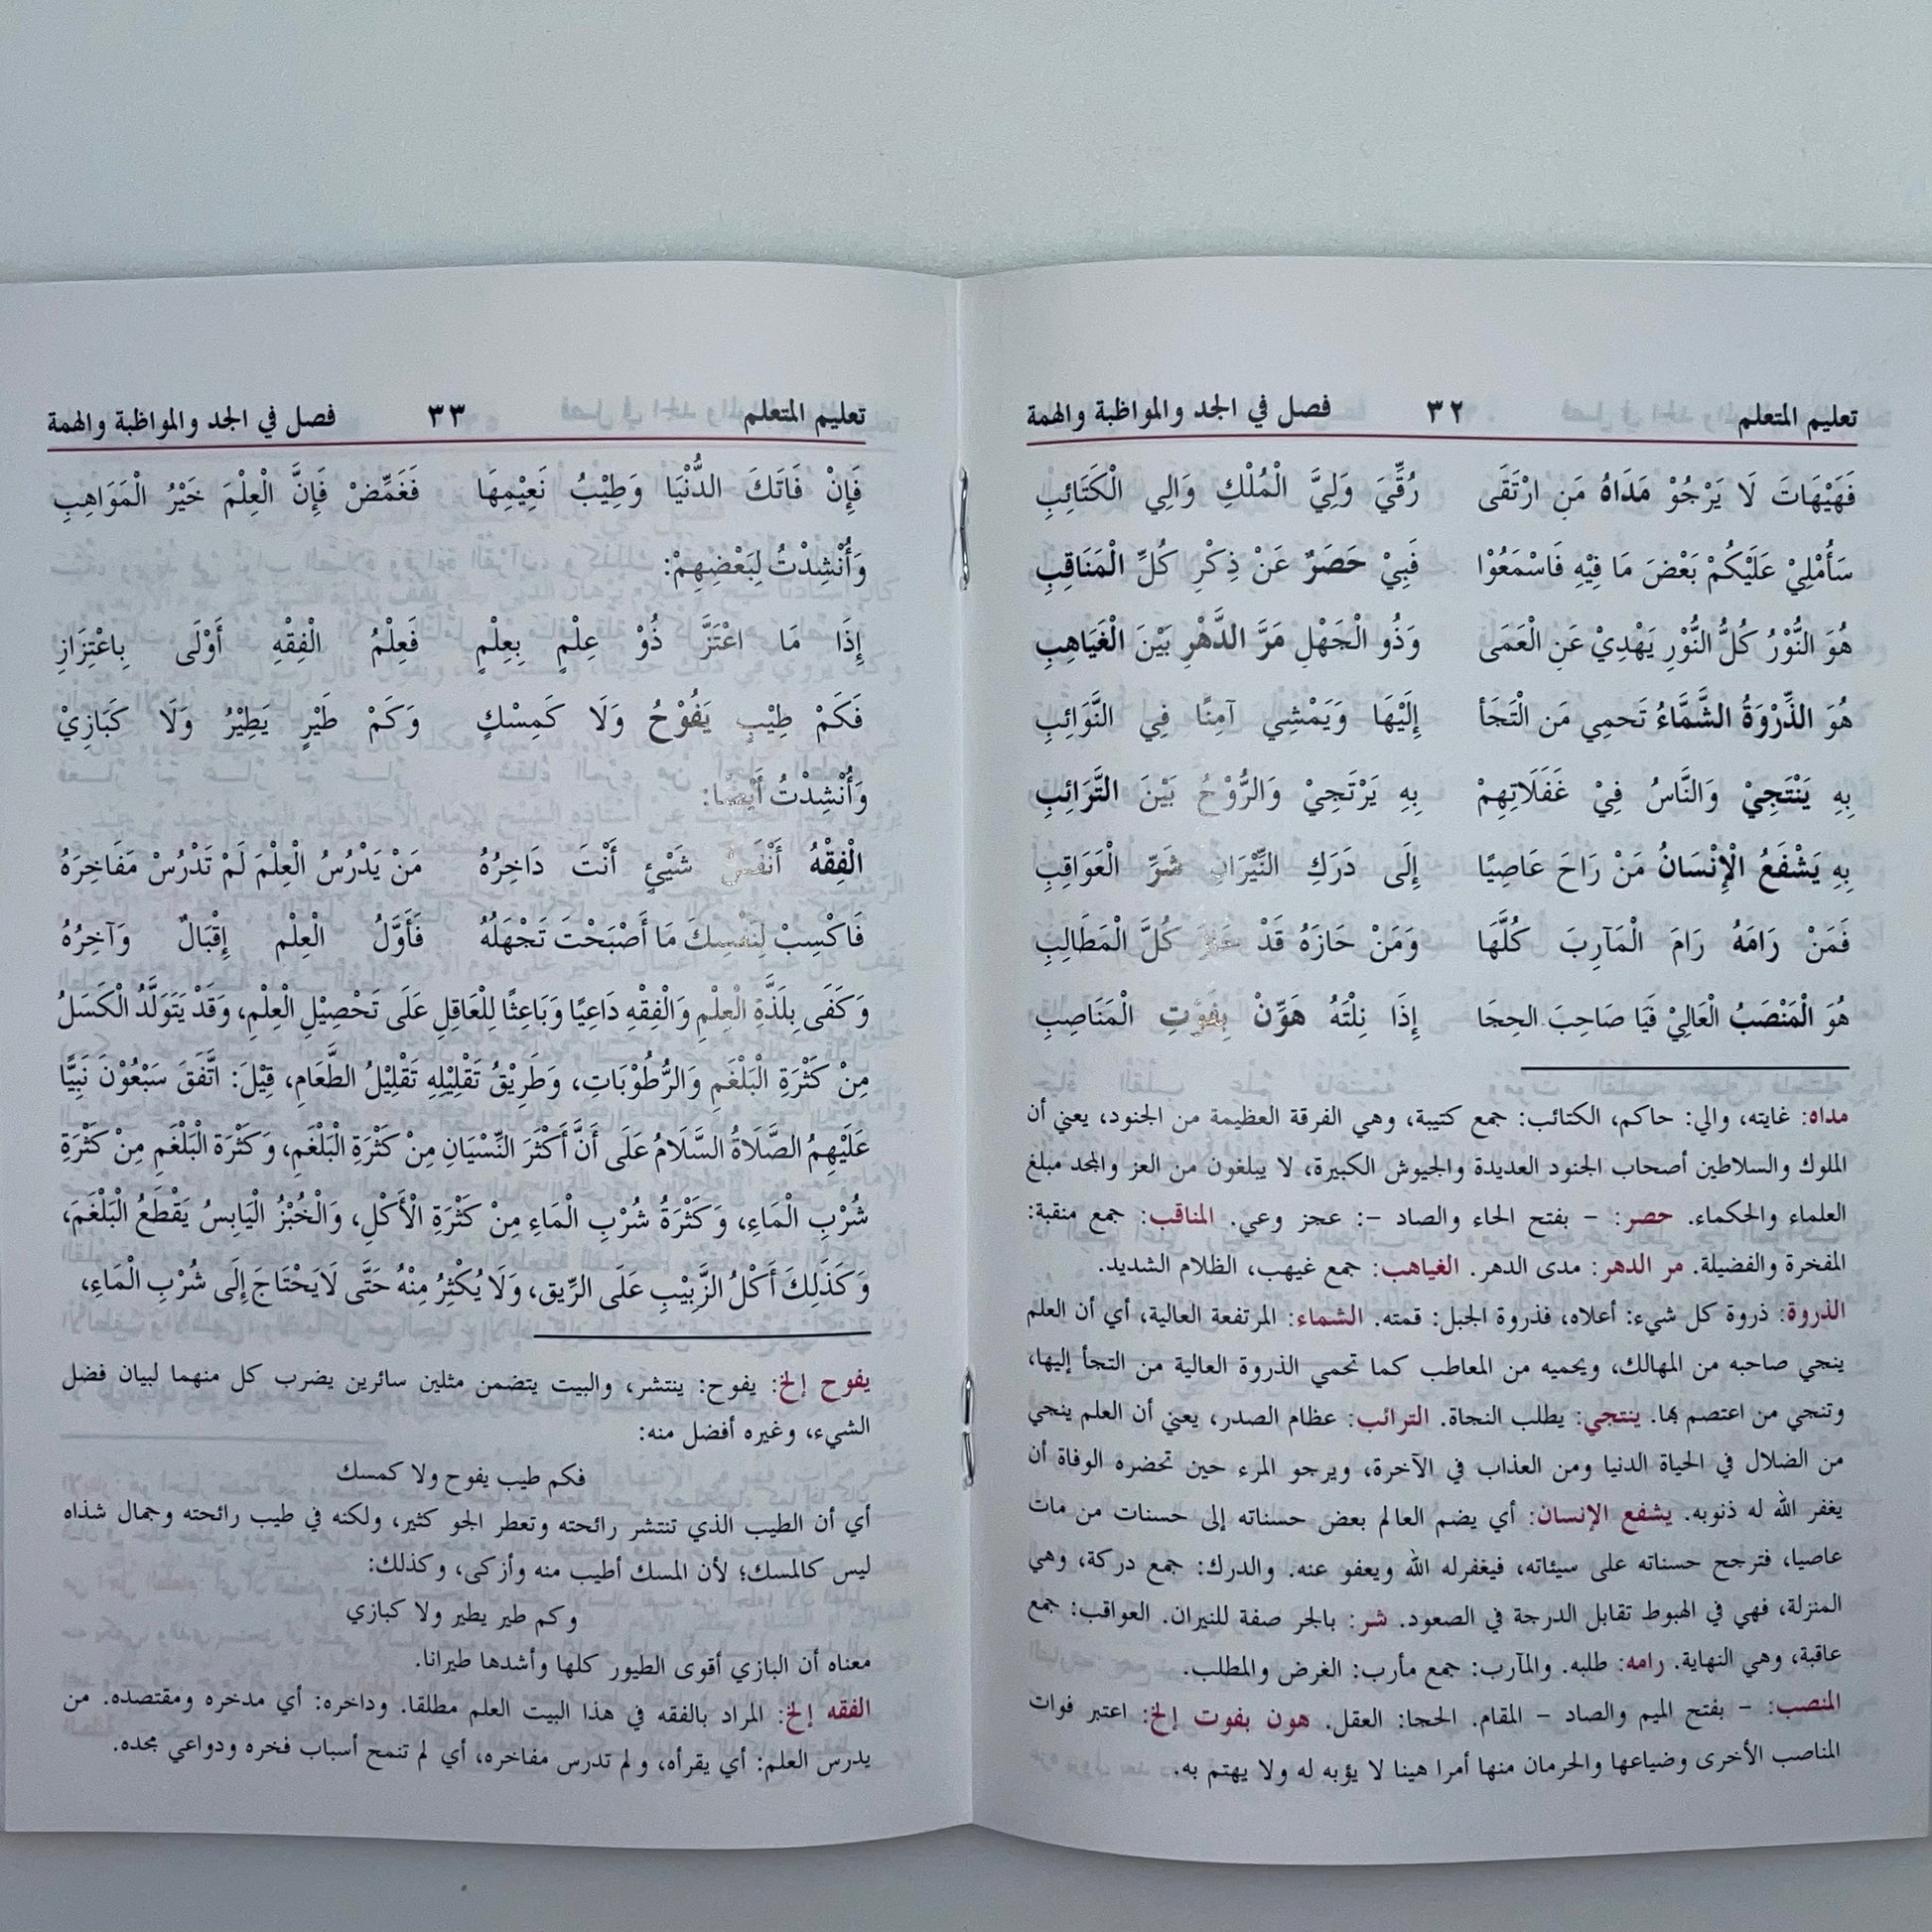 تعليم المتعلم ٣٢ فصل في الجد والمواظبة والهمة
فَهَيْهَاتَ لَا يَرْجُوْ مَدَاهُ مَنِ ارْتَقَى رُقِّيَ وَلِيَّ الْمُلْكِ وَالِي الْكَتَائِبِ
سَأُمْلِيْ عَلَيْكُمْ بَعْضَ مَا فِيْهِ فَاسْمَعُوْا فَبِيْ حَصَرٌ عَنْ ذِكْرِ كُلِّ الْمَنَاقِبِ
هُوَ النُّوْرُ كُلُّ النُّوْرِ يَهْدِيْ عَنِ الْعَمَى وَذُو الْجَهْلِ مَرَّ الدَّهْرِ بَيْنَ الْغَيَاهِبِ
هُوَ الذِّرْوَةُ الشَّمَّاءُ تَحمِي مَن الْتَجَأ إِلَيْهَا وَيَمْشِي آمِنًا فِي النَّوَائِبِ
بِهِ يَنْتَجِيْ وَالنَّاسُ فِيْ غَفَلَاتِهِمْ بِهِ يَرْتَجِيْ وَالرُّوْحُ بَيْنَ التَّرَائِبِ
بِهِ يَشْفَعُ الْإِنْسَانُ مَنْ رَاحَ عَاصِيًا إِلَى دَرَكِ النِّيْرَانِ شَرِّ الْعَوَاقِبِ
فَمَنْ رَامَهُ رَامَ الْمَآرِبَ كُلَّهَا وَمَنْ حَازَهُ قَدْ كُلَّ الْمَطَالِبِ
هُوَ الْمَنْصَبُ الْعَالِيْ فَيَا صَاحِبَ الحِجَا إِذَا نِلْتَهُ هَوِّنْ بِفَوْتِ الْمَنَاصِبِ
مداه: غايته، والي: حاكم، الكتائب: جمع كتيبة، وهي الفرقة العظيمة من الجنود، يعني أن
الملوك والسلاطين أصحاب الجنود العديدة والجيوش الكبيرة، لا يبلغون من العز والمجد مبلغ
العلماء والحكماء. حصر: – بفتح الحاء والصاد –: عجز وعي. المناقب: جمع منقبة:
المفخرة والفضيلة. مر الدهر: مدى الدهر. الغياهب: جمع غيهب، الظلام الشديد.
الذروة: ذروة كل شيء: أعلاه، فذروة الجبل: قمته. الشماء: المرتفعة العالية، أي أن العلم
ينجي صاحبه من المهالك، ويحميه من المعاطب كما تحمي الذروة العالية من التجأ إليها،
وتنجي من اعتصم بها. ينتجي: يطلب النجاة. الترائب: عظام الصدر، يعني أن العلم ينجي
من الضلال في الحياة الدنيا ومن العذاب في الآخرة، ويرجو المرء حين تحضره الوفاة أن
يغفر الله له ذنوبه. يشفع الإنسان: أي يضم العالم بعض حسناته إلى حسنات من مات
عاصيا، فترجح حسناته على سيئاته، فيغفرله الله ويعفو عنه. والدرك: جمع دركة، وهي
المنزلة، فهي في الهبوط تقابل الدرجة في الصعود. شر: بالجر صفة للنيران. العواقب: جمع
عاقبة، وهي النهاية. رامه: طلبه. والمآرب: جمع مأرب: الغرض والمطلب.
المنصب: – بفتح الميم والصاد – المقام. الحجا: العقل. هون بفوت إلخ: اعتبر فوات
المناصب الأخرى وضياعها والحرمان منها أمرا هينا لا يؤبه له ولا يهتم به.
تعليم المتعلم ٣٣ فصل في الجد والمواظبة والهمة
فَإِنْ فَاتَكَ الدُّنْيَا وَطِيْبُ نَعِيْمِهَا فَغَمِّضْ فَإِنَّ الْعِلْمَ خَيْرُ الْمَوَاهِبِ
وَأُنْشِدْتُ لِبَعْضِهِمْ:
إِذَا مَا اعْتَزَّ ذُوْ عِلْمٍ بِعِلْمٍ فَعِلْمُ الْفِقْهِ أَوْلَى بِاعْتِزَازِ
فَكَمْ طِيْبٍ يَفُوْحُ وَلَا كَمِسْكٍ وَكَمْ طَيْرٍ يَطِيْرُ وَلَا كَبَازِيْ
وَأُنْشِدْتُ أَيْضًا:
الْفِقْهُ أَنْفَسُ شَيْئٍ أَنْتَ دَاخِرُهُ مَنْ يَدْرُسُ الْعِلْمَ لَمْ تَدْرُسْ مَفَاخِرَهُ
فَاكْسِبْ لِنَفْسِكَ مَا أَصْبَحْتَ تَجْهَلُهُ فَأَوَّلُ الْعِلْم إِقْبَالٌ وَآخِرُهُ
وَكَفَى بِلَذَّةِ الْعِلْمِ وَالْفِقْهِ دَاعِيًا وَبَاعِثًا لِلْعَاقِلِ عَلَى تَحْصِيْلِ الْعِلْمِ، وَقَدْ يَتَوَلَّدُ الْكَسَلُ
مِنْ كَثْرَةِ الْبَلْغَمِ وَالرُّطُوْبَاتِ، وَطَرِيْقُ تَقْلِيْلِهِ تَقْلِيْلُ الطَّعَامِ، قِيْلَ: اتَّفَقَ سَبْعُوْنَ نَبِيًّا
عَلَيْهِمُ الصَّلَاةُ السَّلَامُ عَلَى أَنَّ أَكْثَرَ النِّسْيَانِ مِنْ كَثْرَةِ الْبَلْغَمِ، وَكَثْرَة الْبَلْغَمِ مِنْ كَثْرَةِ
شُرْبِ الْمَاءِ، وَكَثْرَةُ شُرْبِ الْمَاءِ مِنْ كَثْرَةِ الْأَكْلِ، وَالْخُبْزُ الْيَابِسُ يَقْطَعُ الْبَلْغَمَ،
وَكَذَلِكَ أَكْلُ الزَّبِيْبِ عَلَى الرِّيق، وَلَا يُكْثِرُ مِنْهُ حَتَّى لَايَحْتَاجَ إِلَى شُرْبِ الْمَاءِ،
يفوح إلخ: يفوح: ينتشر، والبيت يتضمن مثلين سائرين يضرب كل منهما لبيان فضل
الشيء، وغيره أفضل منه:
فكم طيب يفوح ولا كمسك
أي أن الطيب الذي تنتشر رائحته وتعطر الجو كثير، ولكنه في طيب رائحته وجمال شذاه
ليس كالمسك؛ لأن المسك أطيب منه وأزكى، وكذلك:
وكم طير يطير ولا كبازي
معناه أن البازي أقوى الطيور كلها وأشدها طيرانا.
الفقه إلخ: المراد بالفقه في هذا البيت العلم مطلقا. وداخره: أي مدخره ومقتصده. من
يدرس العلم: أي يقرأه، ولم تدرس مفاخره، أي لم تنمح أسباب فخره ودواعي مجده.